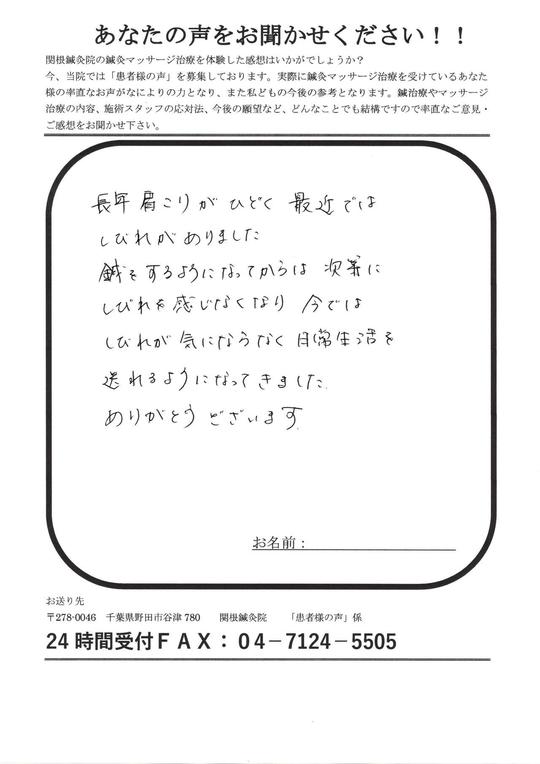 あなたの声をお聞かせください！！
関根鍼灸院の鍼灸マッサージ治療を体験した感想はいかがでしょうか？
今、当院では「患者様の声」を募集しております。実際に鍼灸マッサージ治療を受けているあなた
様の率直なお声がなによりの力となり、また私どもの今後の参考となります。鍼治療やマッサージ
治療の内容、施術スタッフの応対法、今後の願望など、どんなことでも結構ですので率直なご意見・
ご感想をお聞かせ下さい。
長年肩こりがひどく 最近では
しびれがありました
鍼をするようになってからは 次第に
しびれを感じなくなり 今では
しびれが気にならなく日常生活を
送れるようになってきました。
ありがとうございます。
お名前：
お送り先
〒278-0046 千葉県野田市谷津780 関根鍼灸院 「患者様の声」係
24時間受付ＦＡＸ：０４－7124－5505